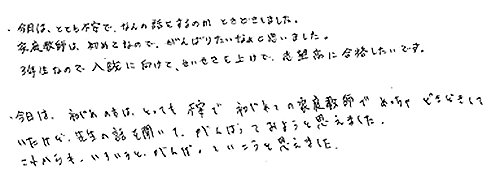 ・今日は、とても不安で、なんの話をするのか ときどきしました。
家庭教師は、初めてなので、がんばりたいなぁと思いました。
3年生なので 入試に向けて、せいせきを上げて、志望高に合格したいです。
・今日は、初めのほうは、とっても 不安で 初めての家庭教師で めっちゃ どきどきして
いたけど、先生の話を聞いて、がんばってみようと思えました。
これからも、いろいろと、がんばっていこうと思えました。